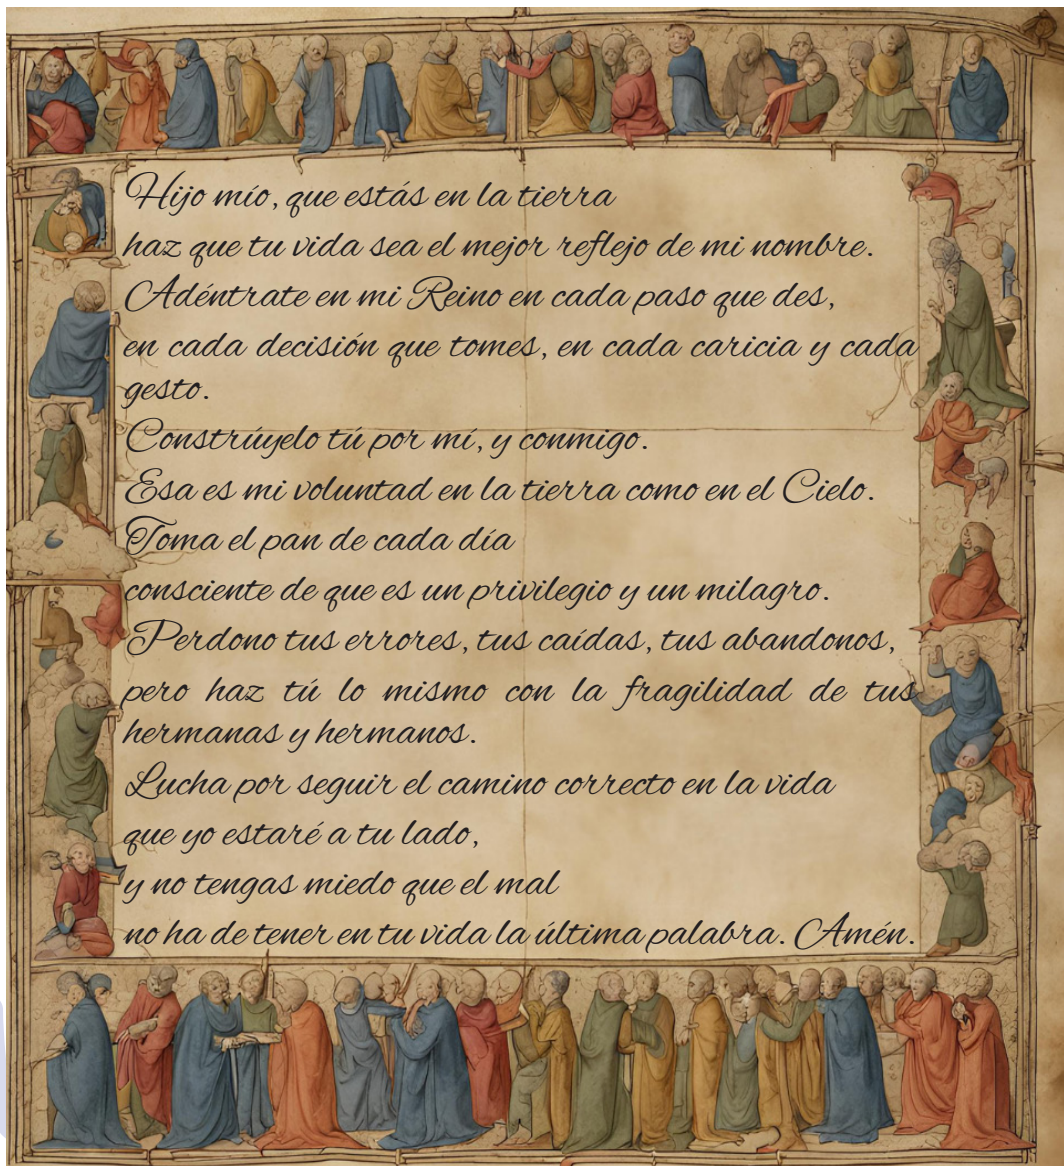 Hijo mío, que estás en la tierra
haz que tu vida sea el mejor reflejo de mi nombre.
Adéntrate en mi Reino en cada paso que des,
en cada decisión que tomes, en cada caricia y cada
gesto.
Constrúyelo tú por mí, y conmigo.
Esa es mi voluntad en la tierra como en el Cielo.
Toma el pan de cada día
consciente de que es un privilegio y un milagro.
Perdono tus errores, tus caídas, tus abandonos,
pero haz tú lo mismo con la fragilidad de tus
hermanas y hermanos.
Lucha por seguir el camino correcto en la vida
que yo estaré a tu lado,
y no tengas miedo que el mal
no ha de tener en tu vida la última palabra. Amén.